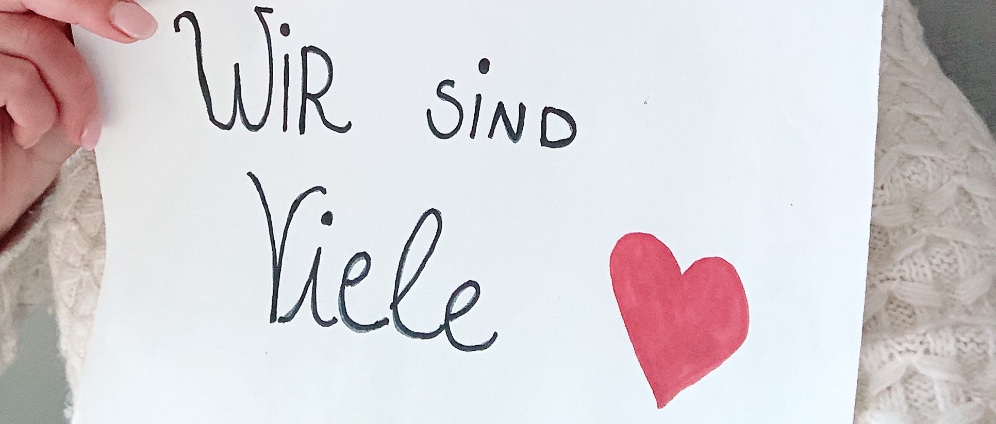 WiR SiND
Viele